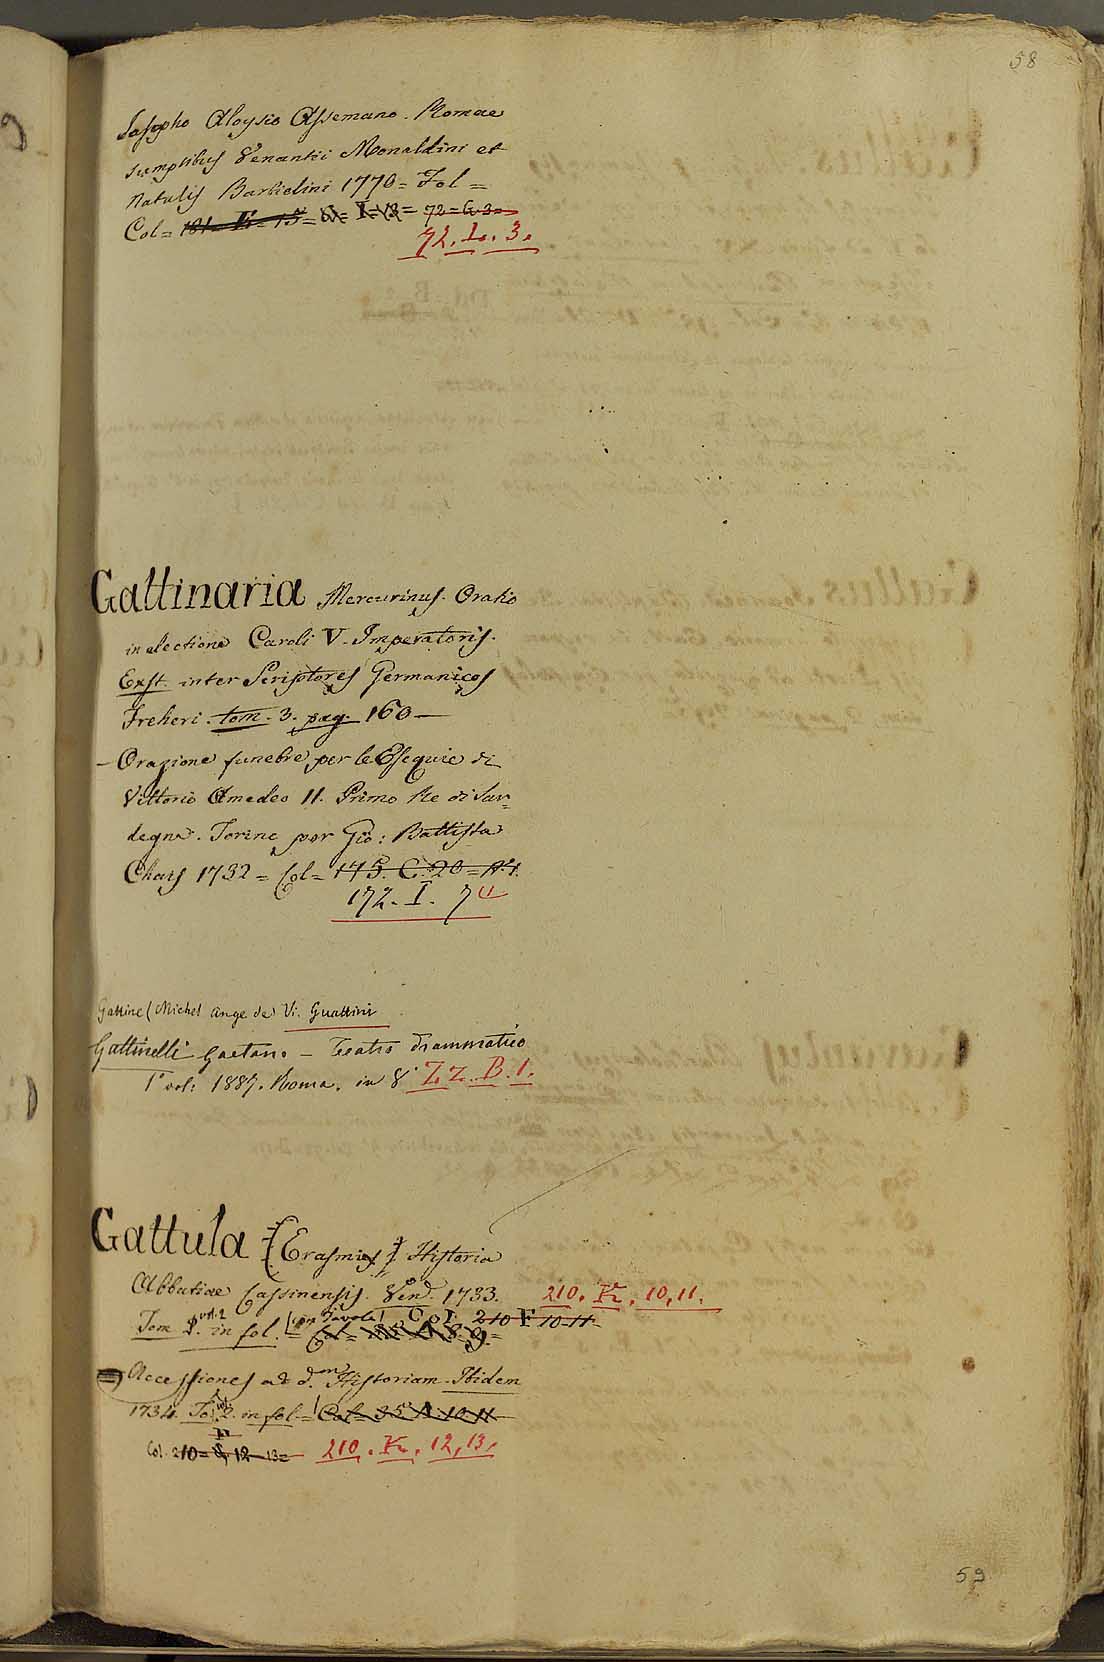 58
Josepho Aloysio Assemano. Romae
sumptibus Venantii Monaldini et
Natalis Barbielini 1770 = Fol =
Col = 181 = E = 15 = 72 = G. 3 =
72. L. 3.
Gattinaria Mercurinus. Oratio
in electione Caroli V. Imperatoris.
Exst. inter Scriptores Germanicos
Freheri. tom. 3. pag. 160 —
— Orazione funebre per le Esequie di
Vittorio Amedeo II. Primo Re di Sar=
degna. Torino per Gio: Battista
Chais 1732 = Col = 175. C. 20 = A. 1.
172. I. 7
Gattine (Michel Ange de) Vi. Guattini
Gattinelli Gaetano — Teatro Drammatico
1° vol: 1887. Roma. in 8° Z.Z. B. 1.
Gattula (Erasmus) Historia
Abbatiae Cassinensis. Ven. 1733. 210. K. 10, 11.
Tom vol. 2 in fol. (con Tavole) Col. 210 F 10 11
Accessiones ad d.am Historiam. Ibidem
1734. To: 2. in fol = Col = 35 A. 10. 11
Col. 210 = 12 13 = 210. K. 12, 13.
59